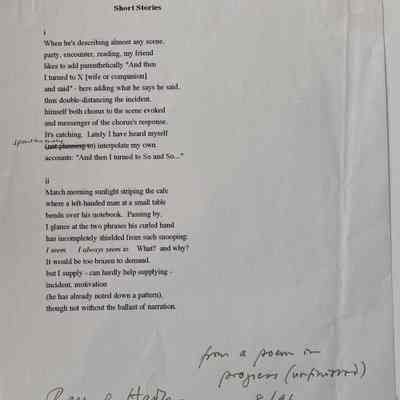 Short Stories
i
When he's describing almost any scene,
party, encounter, reading, my friend
likes to add parenthetically "And then
I turned to X [wife or companion]
and said" - here adding what he says he said,
thus double-distancing the incident,
himself both chorus to the scene evoked
and messenger of the chorus's response.
It's catching. Lately I have heard myself
spontaneously
(not planning to) interpolate my own
accounts: "And then I turned to So and So..."
ii
Match morning sunlight striping the cafe
where a left-handed man at a small table
bends over his notebook. Passing by,
I glance at the two phrases his curled hand
has incompletely shielded from such snooping:
I seem I always seem to. What? and why?
It would be too brazen to demand,
but I supply - can hardly help supplying -
incident, motivation
(he has already noted down a pattern),
though not without the ballast of narration.
from a poem in
progress (unfinished)
8/96